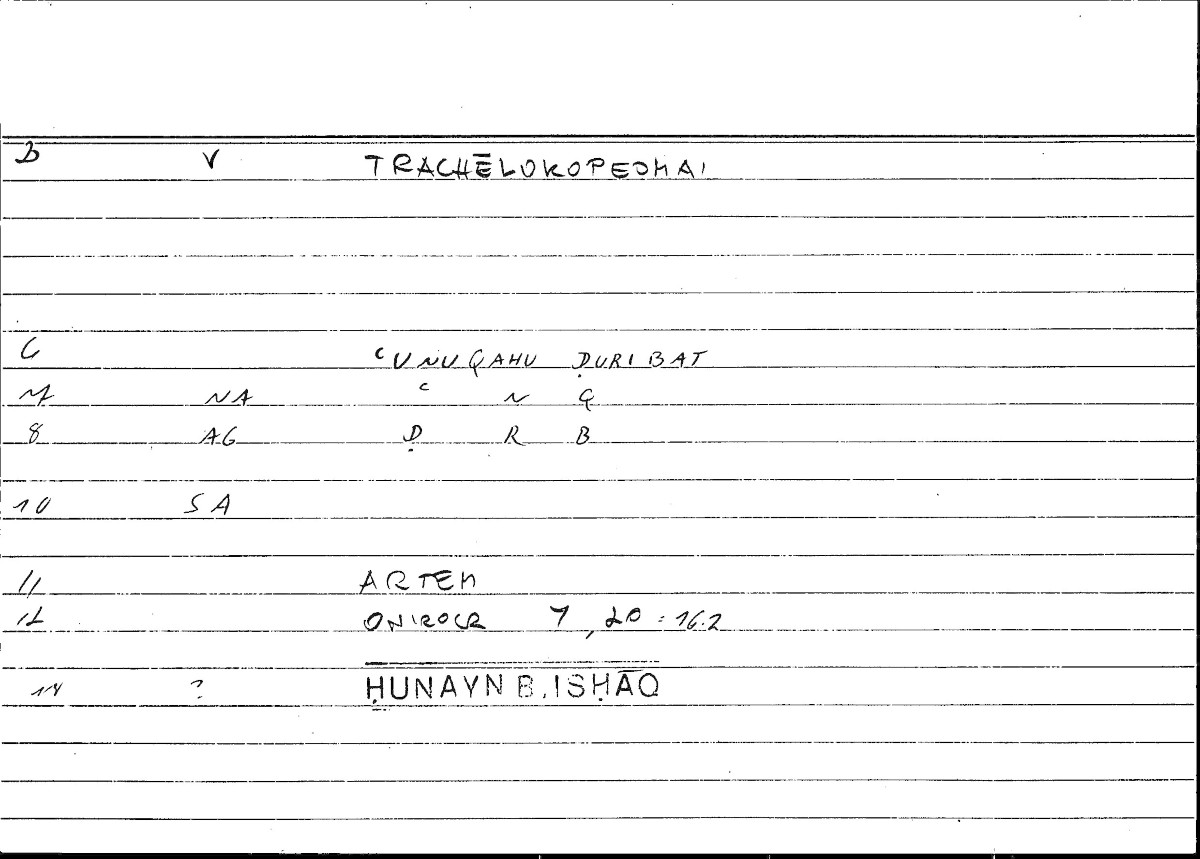 D V TRACHĒLOKOPEOMAI
6 ʿUNUQAHU ḌURIBAT
7 NA ʿ N Q
8 AG Ḍ R B
10 SA
11 ARTEM
12 ONIROCR 7, 20 : 16.2
14 ? ḤUNAYN B. ISḤĀQ